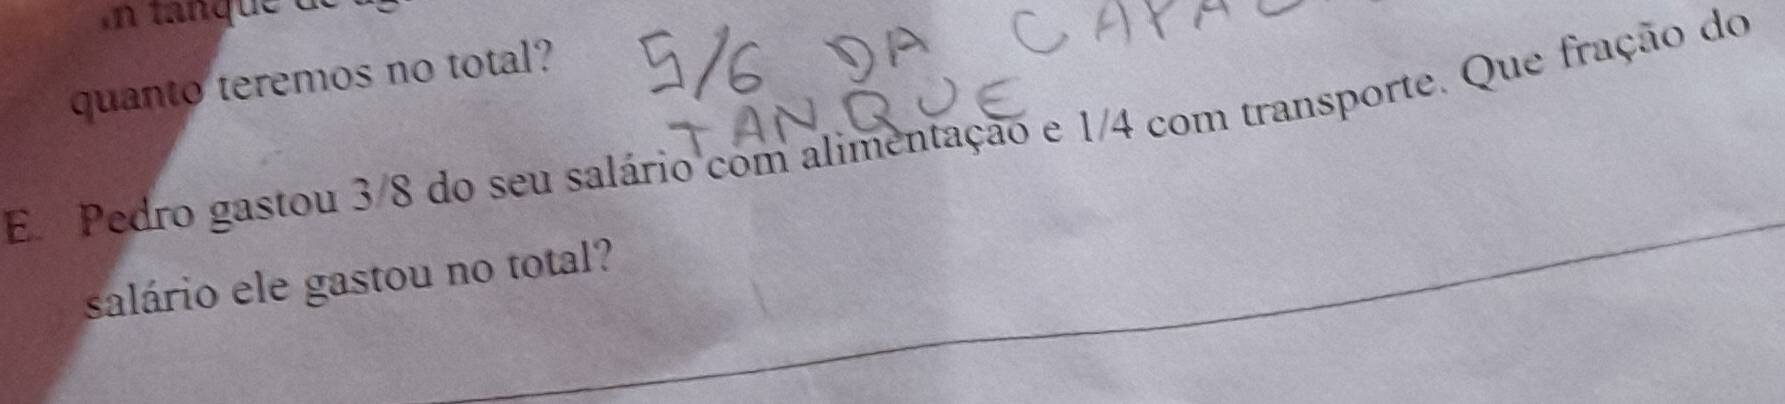 tanque
quanto teremos no total? 5/6 DA
TANQUE
E. Pedro gastou 3/8 do seu salário com alimentação e 1/4 com transporte. Que fração do
salário ele gastou no total?